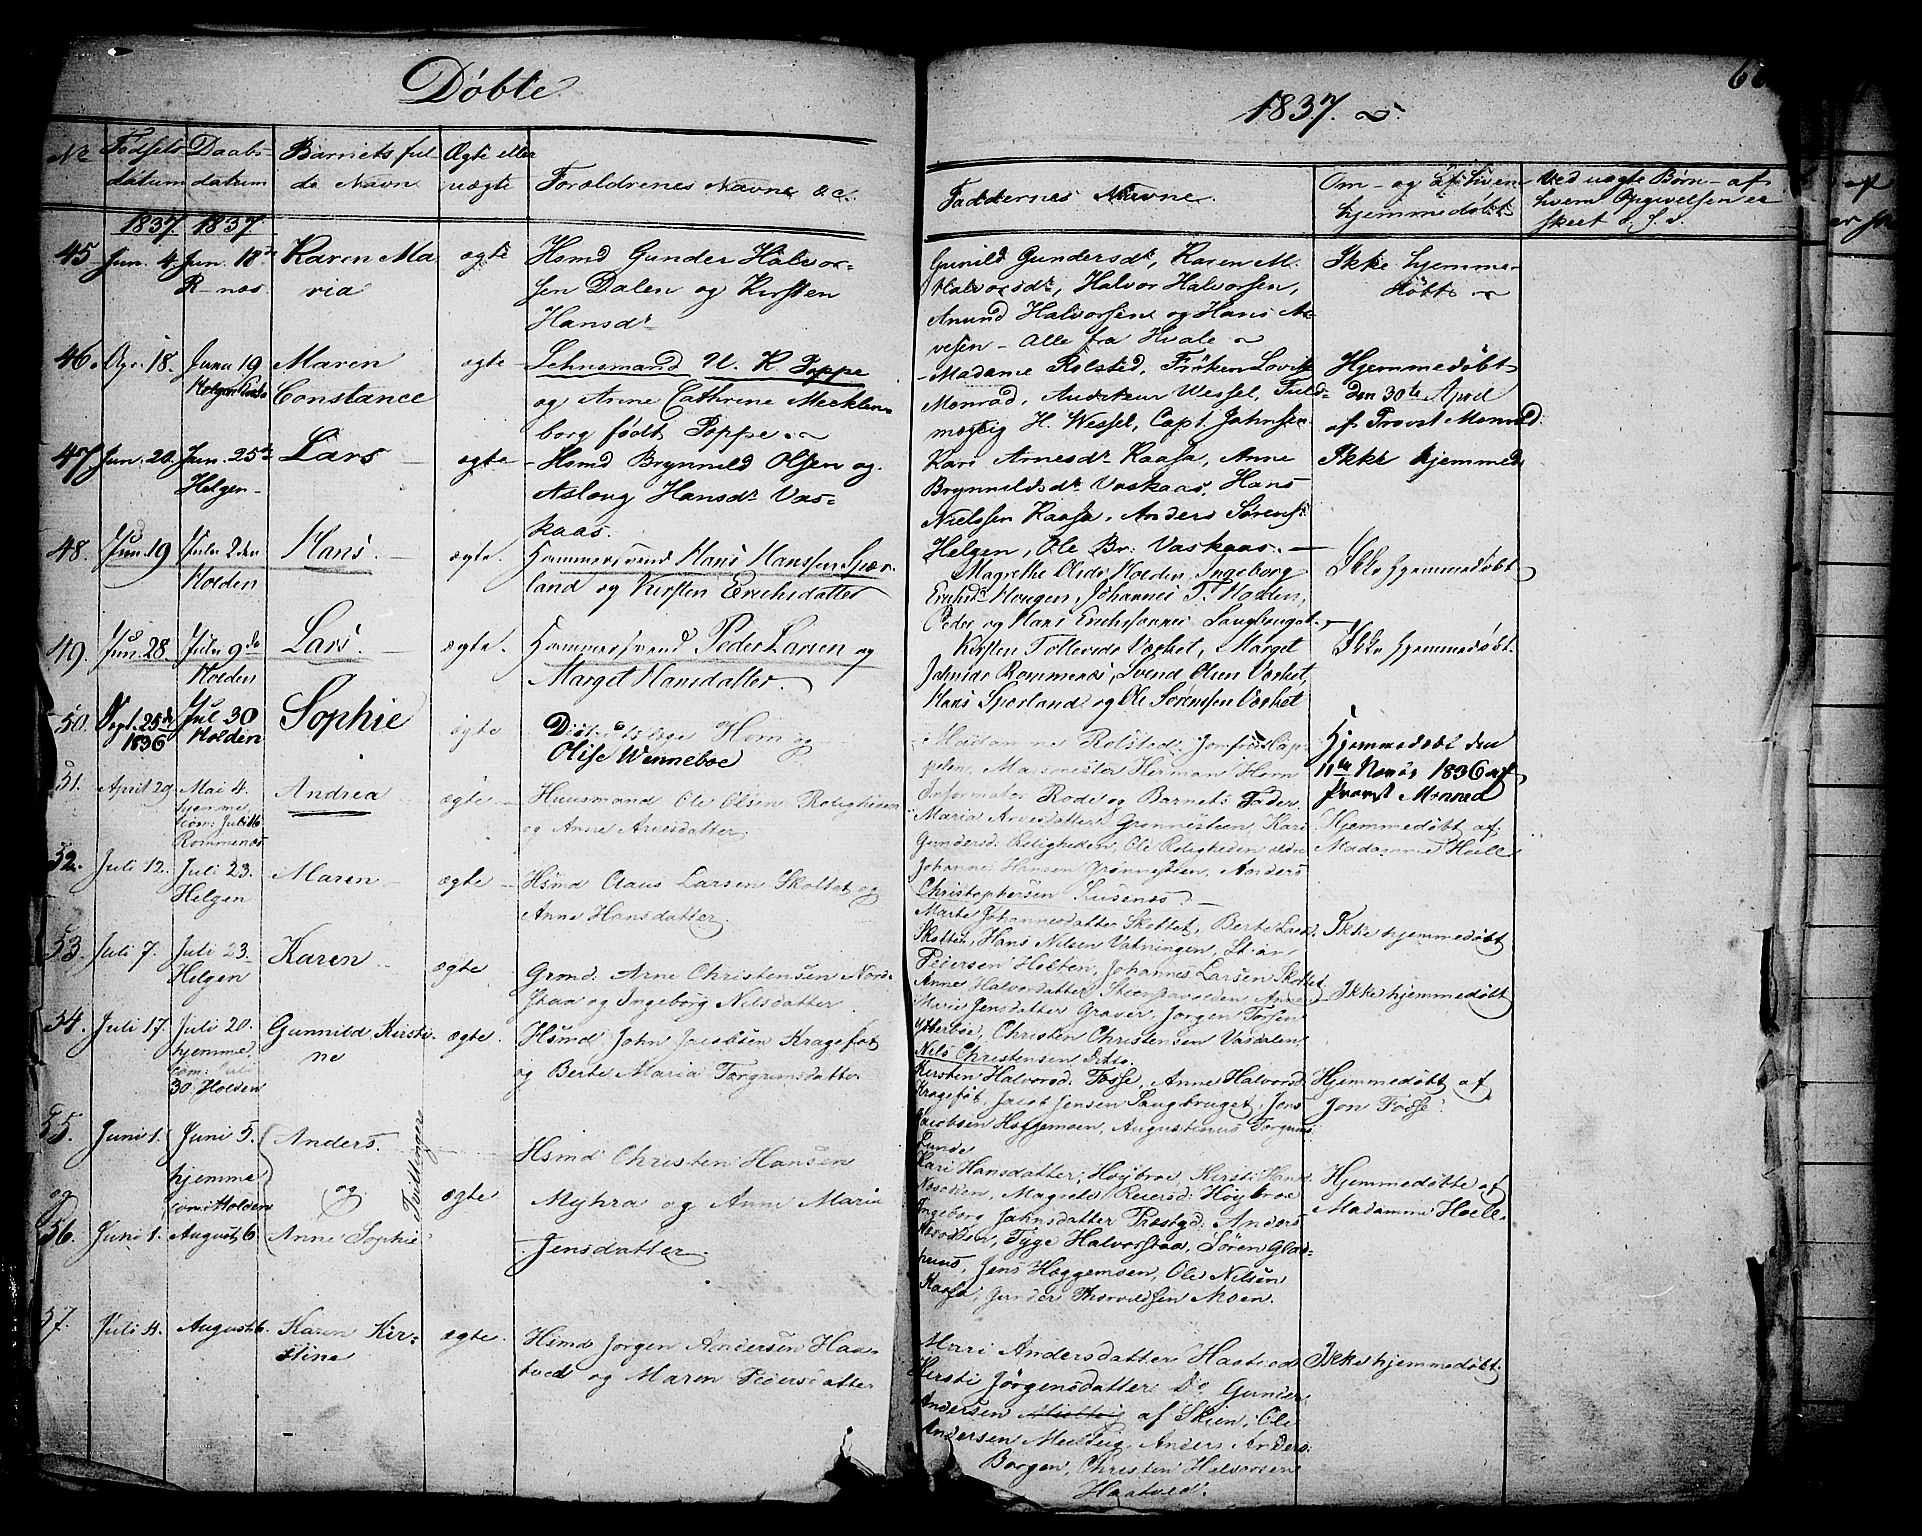 Døbte
1837.
Nr
Fødsels datum
Daabs datum
Barnets fulde Navn
Ægte eller uægte
Forældrenes Navne &c.
Faddernes Navne.
Om - og af hvem hjemmedøbt
Ved uægte Børn - af hvem Opgivelsen er skeet o. s. v.
1837. 1837.
45 Jun. 4. Jun. 18de
R-næs
Karen Maria
ægte
Hsmd Gunder Halvor-
sen Dalen og Kirsten
Hansdr
Gunild Gundersdr, Karen M.
Halvorsdr, Halvor Halvorsen,
Anund Halvorsen og Hans A-
vesen - Alle fra Hvale
Ikke hjemme-
døbt
46. Apr. 18. Juni 19
Maren
Constance
ægte
Lehnsmand U. K. Poppe
og Anne Cathrine Mecklen-
borg født Poppe.
Madame Rolsted, Frøken Lovise
Monrad, Auditeur Wessel, Fuld-
mægtig H. Wessel, Capt. Johnsen
Hjemmedøbt
den 30te April
af Provst Monrad.
47 Jun. 20. Jun. 25de
Helgen
Lars
ægte
Hsmd Brynnild Olsen og
Aslaug Hansdr Vas-
kaas.
Kari Arnesdr Kaasa, Anne
Brynnildsdr Vaskaas, Hans
Nielssen Kaasa, Anders Sørens.
Helgen, Ole Br. Vaskaas.
Ikke hjemmed
48. Jun. 19 Julii 2den
Holden
Hans.
ægte.
Hammersvend Hans Hanssen Spær-
land og Kirsten Erichsdatter
Magrethe Olsdr Holden, Ingeborg
Erichsdr Hougen, Johannes T. Holden,
Peder og Hans Erichsønner Saugbruget.
Ikke hjemmedøbt
49. Jun. 28. Julii 9de
Holden
Lars.
ægte.
Hammersvend Peder Larsen og
Marget Hansdatter.
Kirsten Tollevsdr Værket, Marget
Johnsdr Rommenæs, Svend Olsen Værket,
Hans Spærland og Ole Sørensen Værket
Ikke hjemmedøbt.
50. Sept. 25de
1836
Jul 30
Holden
Sophie
ægte
Horn og
Olise Wenneboe
Madamme Rolsted, Jomfrue Cap-
pelen, Marsmester Herman Horn
Informator Rode og Barnets Fader.
Hjemmedøbt den
11te Novbr 1836 af
Provst Monrad
51. April 29 Mai 4.
hjemme
com: Juli 16
Rommenæs
Andrea
ægte
Huusmand Ole Olsen Roligheden
og Anne Arvesdatter
Maria Arvesdatter Grønnesteen, Kari
Gundersd. Roligheden, Ole Roligheden ældre
Johannes Hansen Grønnesteen, Anders
Christophersen Lusenæs
Hjemmedøbt af
Madamme Hoell
52. Juli 12. Juli 23.
Helgen
Maren
ægte
Hsmd Claus Larsen Skottet og
Anne Hansdatter
Marte Johannesdatter Skottet, Berte Larsd.
Skotten, Hans Nilsen Vatningen,
Pedersen Holten, Johannes Larsen Skottet
Ikke hjemmedøbt
53. Juli 7. Juli 23.
Helgen
Karen
ægte
Grmd. Arne Christensen Nord-
staa og Ingeborg Nilsdatter
Anne Halvorsdatter
Marie Jensdatter Graver, Jørgen Torsen
Ytterboe, Christen Christensen Vasdalen,
Nils Christensen Ditto.
Ikke hjemmedøbt
54. Juli 17. Juli 20.
hjemme
com: Juli
30 Holden
Gunnild Kirsti-
ne
ægte
Hsmd John Jacobsen Kragefot
og Berte Maria Torgrimsdatter
Kirsten Halvorsd. Fosse, Anne Halvorsd
Kragefot, Jacob Jensen Saugbruget, Jens
Jacobsen Hoggemoen, Augustinus Torgrims:
Lunde
Hjemmedøbt af
Jon Fosse
55. Juni 1. Juni 5.
hjemme
com: Holden
Anders.
og
og
Tvillinger
ægte
Hsmd Christen Hansen
Myhra og Anne Maria
Jensdatter
56. Juni 1. August 6.
Anne Sophie
Kari Hansdatter Høybroe, Kirsti Hansd.
Magrete Reiersd. Høybroe
Ingeborg Jahnsdatter Præstgd. Anders
Tyge Halvorstad, Søren Glas-
huus, Jens Hoggemoen, Ole Nilsen
Kaasa, Gunder Thorvildsen Moen.
Hjemmedøbte af
Madamme Hoell
57. Juli 4. August 6.
Karen Kir-
stine
ægte
Hsmd Jørgen Andersen Haa-
tved og Maren Pedersdatter
Mari Andersdatter Haatved
Kirsti Jørgensdatter Do, Gunder
Andersen af Skien, Ole
Andersen Melteig, Anders Anders.
Borgen, Christen Halvorsen
Haatved.
Ikke hjemmedøbt